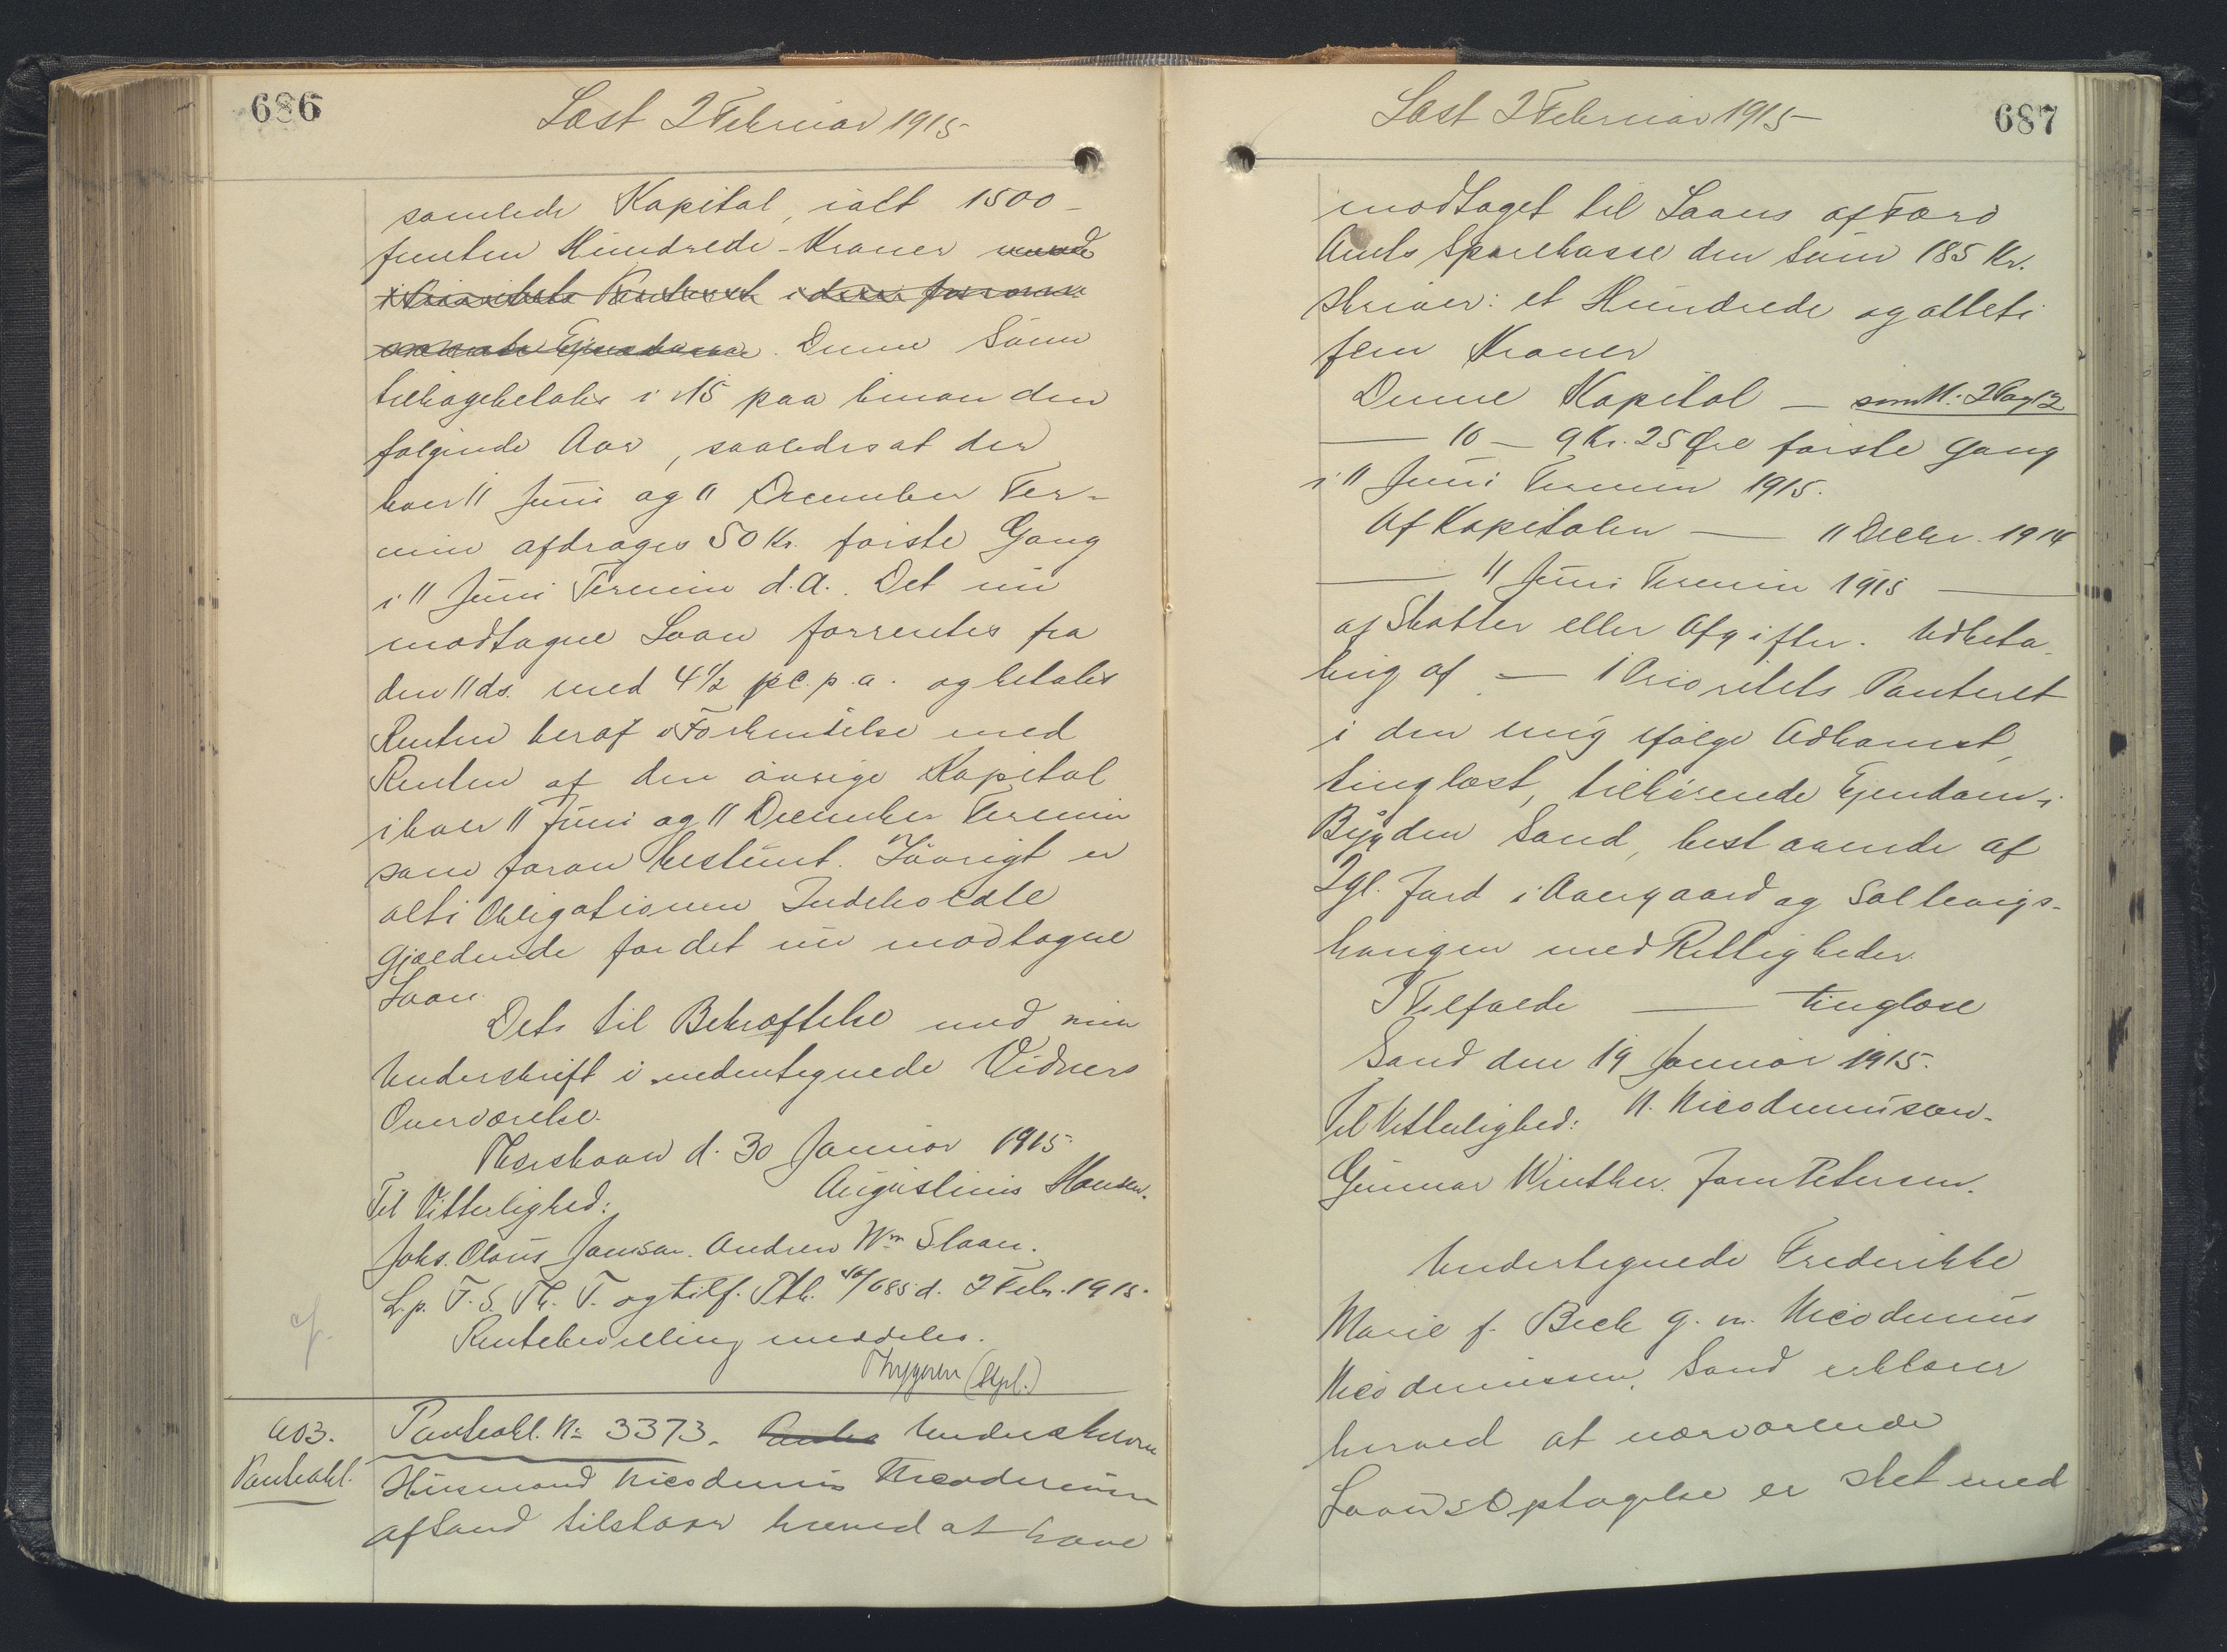 686
Læst 2 Februar 1915
samlede Kapital, ialt 1500 -
femten Hundrede - Kroner
Denne Sum
tilbagebetales i 15 paa hinan den
følgende Aar, saaledes at der
hver 11 Juni og 11 December Ter-
min afdrages 50 Kr. første Gang
i 11 Juni Termin d.A. Det nu
modtagne Laan forrentes fra
den 11 ds. med 4½ pc. p.a. og betales
Renten heraf i Forbindelse med
Renten af den øvrige Kapital
i hver 11 Juni og 11 December Termin
som foran bestemt. Iøvrigt er
alt i Obligationen Indeholdte
gjældende for det nu modtagne
Laan.
Dets til Bekræftelse med min
Underskrift i undertegnede Vidners
Overværelse.
Thorshavn d. 30 Januar 1915.
Augustinus Hansen.
Til Vitterlighed:
Johs. Olaus Jensen. Andrew Wm Sloan.
L.p. F.S. Th. T. og tilf. Ptb. 46/685 d. 2 Febr. 1915.
Rentebevilling meddeles.
Thygesen (Slgl.)
403. Pantobl. № 3373. Underskrevne
Pantobl. Husmand Nicodemus Nicodemusen
af Sand tilstaar herved at have
687
Læst 2 Februar 1915
modtaget til Laans af Færø
Amts Sparekasse den Sum 185 Kr.
skriver: et Hundrede og otteti
fem Kroner
Denne Kapital — som N: 2 Pag 12
— 10 — 9 Kr. 25 Øre første Gang
i 11 Juni Termin 1915.
Af Kapitalen — 11 Decbr. 1914
— 11 Juni Termin 1915 —
af Skatter eller Afgifter. Udbeta-
ling af — 1 Prioritets Panteret
i den mig ifølge Adkomst,
tinglæst, tilhørende Ejendom i
Bygden Sand, bestaaende af
2 Gl. Jord i Aaergaard og Saltvigs-
haugen med Rettigheder.
I Tilfælde — tinglæse
Sand den 19 Januar 1915.
N. Nicodemusen.
Til Vitterlighed:
Gunnar Winther. Joen Petersen.
Undertegnede Frederikke
Marie f. Beck g. m. Nicodemus
Nicodemussen, Sand erklærer
herved at nærværende
Laans Optagelse er sket med